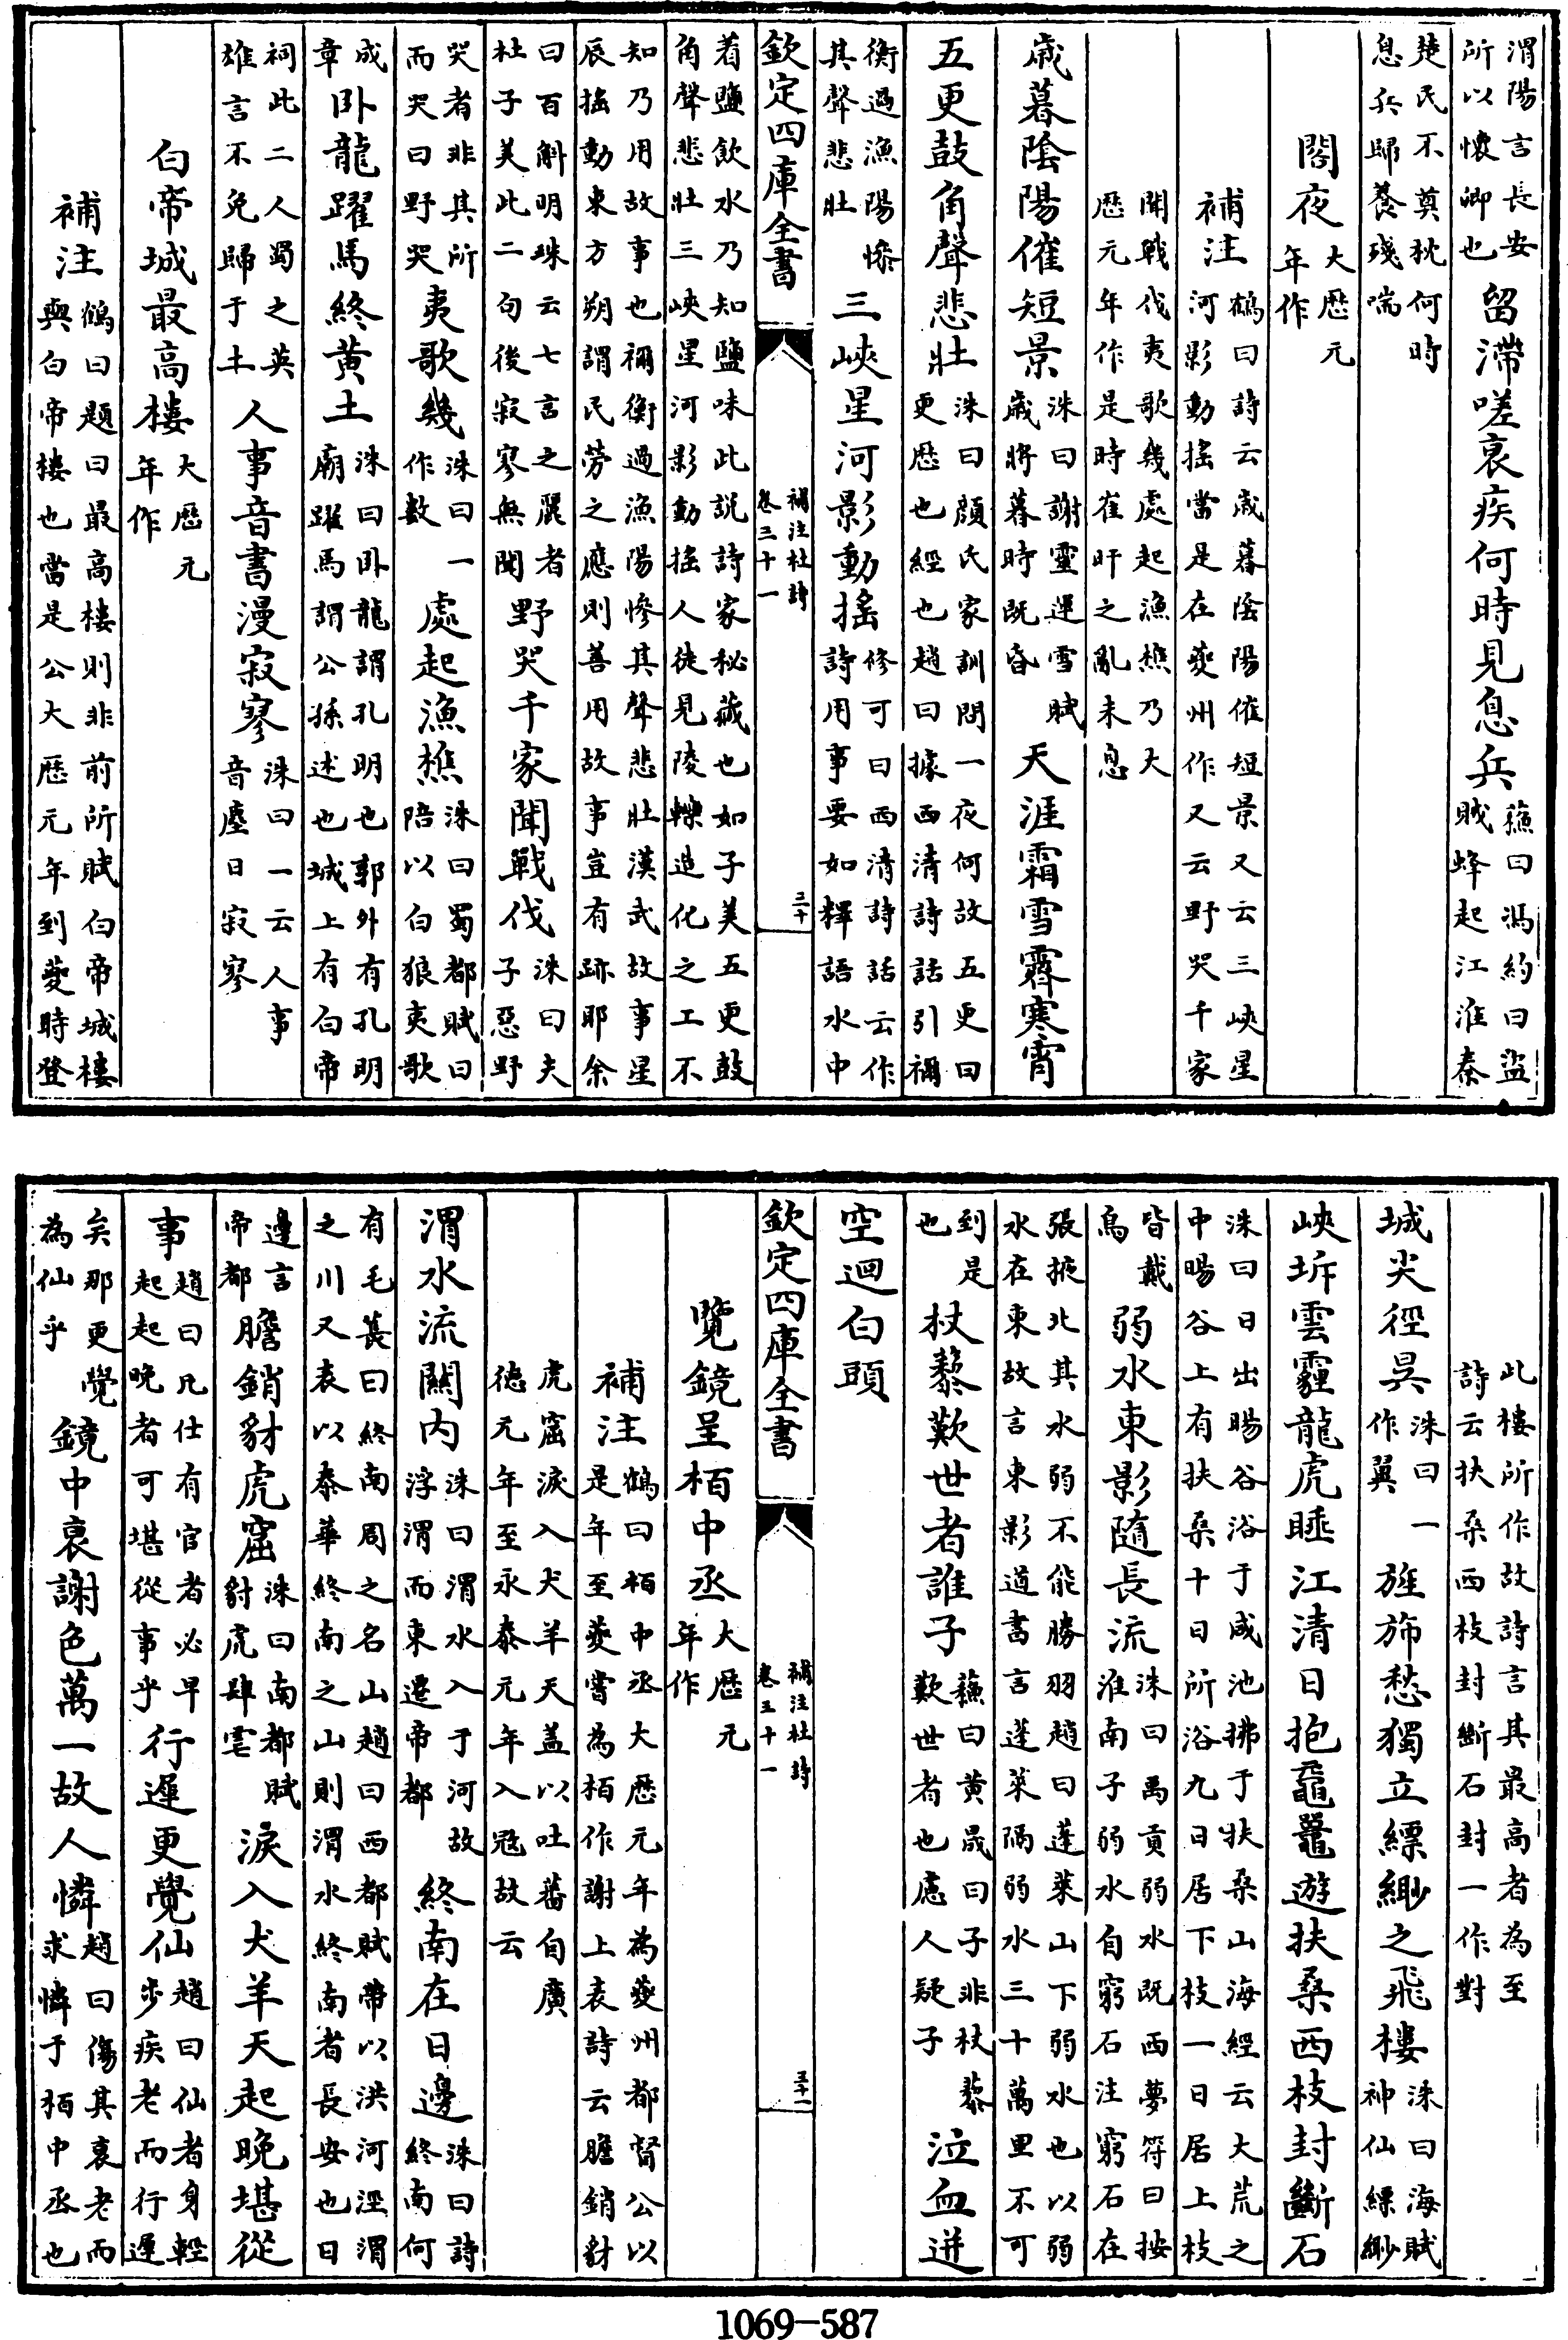 渭陽言長安所以懷卿也留滯嗟衰疾何時見息兵蘓曰馮約曰盜賊蜂起江淮秦
楚民不奠枕何時息兵歸養殘喘
閣夜大歴元年作
補注鶴曰詩云歲暮陰陽催短景又云三峽星河影動搖當是在夔州作又云野哭千家
聞戰伐夷歌幾處起漁樵乃大歴元年作是時崔旰之亂未息
歲暮陰陽催短景洙曰謝靈運雪賦歲將暮時既昏天涯霜雪霽寒宵
五更鼓角聲悲壯洙曰顔氏家訓問一夜何故五更曰更歴也經也趙曰據西清詩話引禰
衡過漁陽慘其聲悲壯三峽星河影動搖修可曰西清詩話云作詩用事要如釋語水中
欽定四庫全書 補注杜詩 卷三十一 三十
着鹽飲水乃知鹽味此説詩家秘藏也如子美五更鼓角聲悲壯三峽星河影動搖人徒見陵轢造化之工不
知乃用故事也禰衡過漁陽慘其聲悲壯漢武故事星辰搖動東方朔謂民勞之應則善用故事豈有跡耶余
曰百斛明珠云七言之麗者杜子美此二句後寂寥無聞野哭千家聞戰伐洙曰夫子惡野
哭者非其所而哭曰野哭夷歌幾洙曰一作數處起漁樵洙曰蜀都賦曰陪以白狼夷歌
成章卧龍躍馬終黄土洙曰卧龍謂孔明也郭外有孔明廟躍馬謂公孫述也城上有白帝
祠此二人蜀之英雄言不免歸于土人事音書漫寂寥洙曰一云人事音塵日寂寥
白帝城最高樓大歴元年作
補注鶴曰題曰最高樓則非前所賦白帝城樓與白帝樓也當是公大歴元年到夔時登
此樓所作故詩言其最高者為至詩云扶桑西枝封斷石封一作對
城尖徑昃洙曰一作翼旌斾愁獨立縹緲之飛樓洙曰海賦神仙縹緲
峽坼雲霾龍虎睡江清日抱黿鼉遊扶桑西枝封斷石
洙曰日出暘谷浴于咸池拂于扶桑山海經云大荒之中暘谷上有扶桑十日所浴九日居下枝一日居上枝
皆戴烏弱水東影隨長流洙曰禹貢弱水既西夢符曰按淮南子弱水自窮石注窮石在
張掖北其水弱不能勝羽趙曰蓬萊山下弱水也以弱水在東故言東影道書言蓬萊隔弱水三十萬里不可
到是也杖藜歎世者誰子蘓曰黄晟曰子非杖藜歎世者也慮人疑子泣血迸
空迴白頭
欽定四庫全書 補注杜詩 卷三十一 三十一
覽鏡呈栢中丞大歴元年作
補注鶴曰栢中丞大歴元年為夔州都督公以是年至夔嘗為栢作謝上表詩云膽銷豺
虎窟淚入犬羊天盖以吐蕃自廣德元年至永泰元年入冦故云
渭水流關内洙曰渭水入于河故浮渭而東遷帝都終南在日邊洙曰詩終南何
有毛萇曰終南周之名山趙曰西都賦帶以洪河涇渭之川又表以泰華終南之山則渭水終南者長安也日
邊言帝都膽銷豺虎窟洙曰南都賦豺虎肆宅淚入犬羊天起晚堪從
事趙曰凡仕有官者必早起起晚者可堪從事乎行遲更覺仙趙曰仙者身輕步疾老而行遲
矣那更覺為仙乎鏡中衰謝色萬一故人憐趙曰傷其衰老而求憐于栢中丞也
1069-587